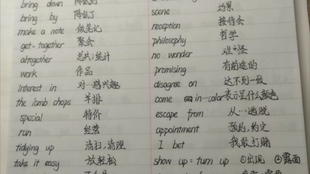 bring down
bring by
make a note 做笔记
get-together 聚会
altogether 总共;总计
work 作品
Interest in 对…感兴趣
the lamb chops 羊排
special 特价
run 经营
tidying up 清扫,清理
take it easy 放轻松
scene 场景
reception 接待会
philosophy 哲学
no wonder 难怪
promising 有前途的
disagree on 达不到一致
come in…color 表示是什么颜色
escape from 从…逃脱
appointment 预约,约定
I bet 我敢打赌
show up = turn up ①出现 ②露面